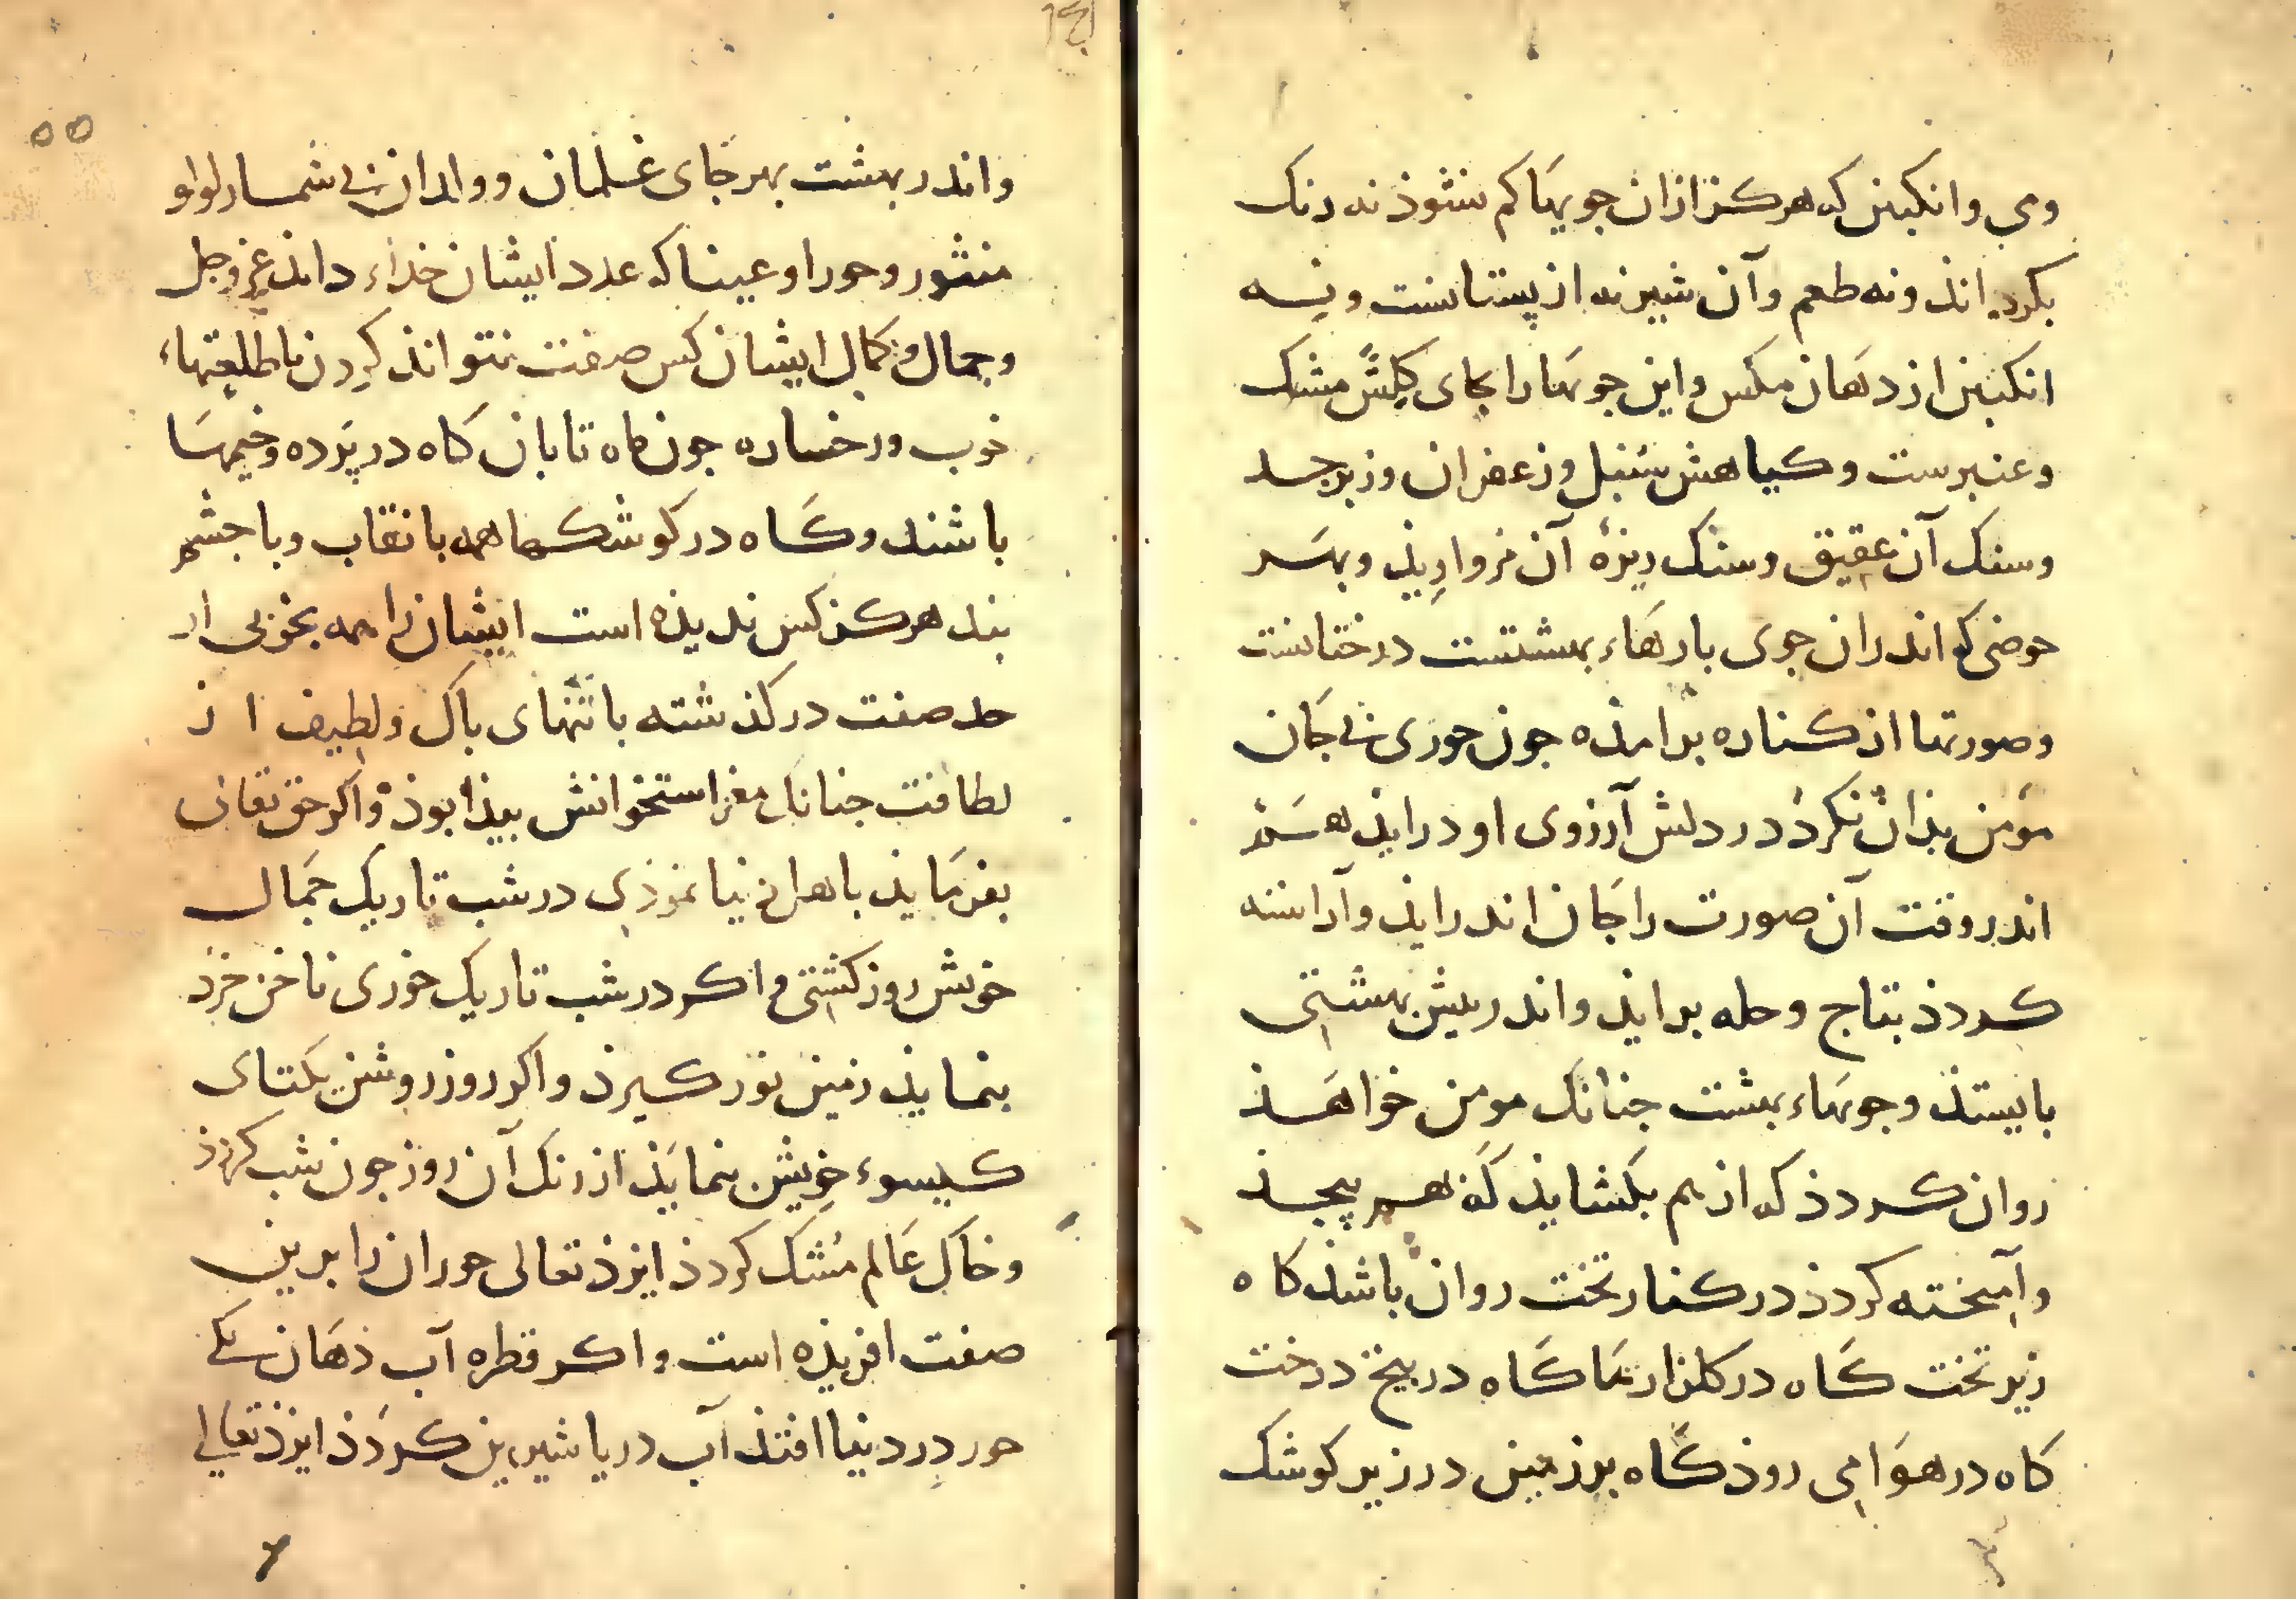 ومی وانکبین که هرکز ازان جویها کم نشوذ نه رنک
بکرداند ونه طعم وآن شیر نه از پستانست ونه
انکبین از دهان مکس واین جویها را بجای کلش مشک
وعنبرست وکیاهش سنبل وزعفران وزبرجد
وسنک آن عقیق وسنک ریزهٔ آن مرواریذ وبهر
حوضی که اندران جوی بارهاء بهشتست درختانست
وصورتها از کناره برامذه جون حوری بی جان
مؤمن بذان نکرذ در دلش آرزوی او درایذ هم
اندر وقت آن صورت را جان اندرایذ وآراسته
کردذ بتاج وحله برایذ واندر پیش بهشتی
بایستذ وجویهاء بهشت جنانک مومن خواهذ
روان کردذ که از هم بکشایذ که بهم پیجذ
وآمیخته کردذ در کنار تخت روان باشذ کاه
زیر تخت کاه در کلزارها کاه در بیخ درخت
کاه در هوا می روذ کاه بر زمین در زیر کوشک
۵۵
واندر بهشت بهر جای غلمان وولدان بی شمار لولو
منثور وحورا وعینا که عدد ایشان خذاء داند عز وجل
وجمال وکمال ایشان کس صفت نتواند کردن با طلعتهاء
خوب ورخساره جون ماه تابان کاه در پرده وخیمها
باشند وکاه در کوشکها همه با نقاب وبا جشم
بند هرکز کس ندیذه است ایشان را همه بخوبی از
حد صفت درکذشته با تنهای باک ولطیف از
لطافت جنانک مغز استخوانش بیذا بوذ واکر حق تعالی
بفرمایذ با اهل دنیا نموذی در شب تاریک جمال
خویش روز کشتی واکر در شب تاریک حوری ناخن خرد
بنمایذ زمین نور کیرذ واکر روز روشن یکتای
کیسوء خویش بنمایذ از رنک آن روز جون شب کردذ
وخاک عالم مشک کردذ ایزذ تعالی حوران را برین
صفت افریذه است واکر قطره آب دهان یکی
حور در دنیا افتذ آب دریا شیرین کردذ ایزذ تعالی